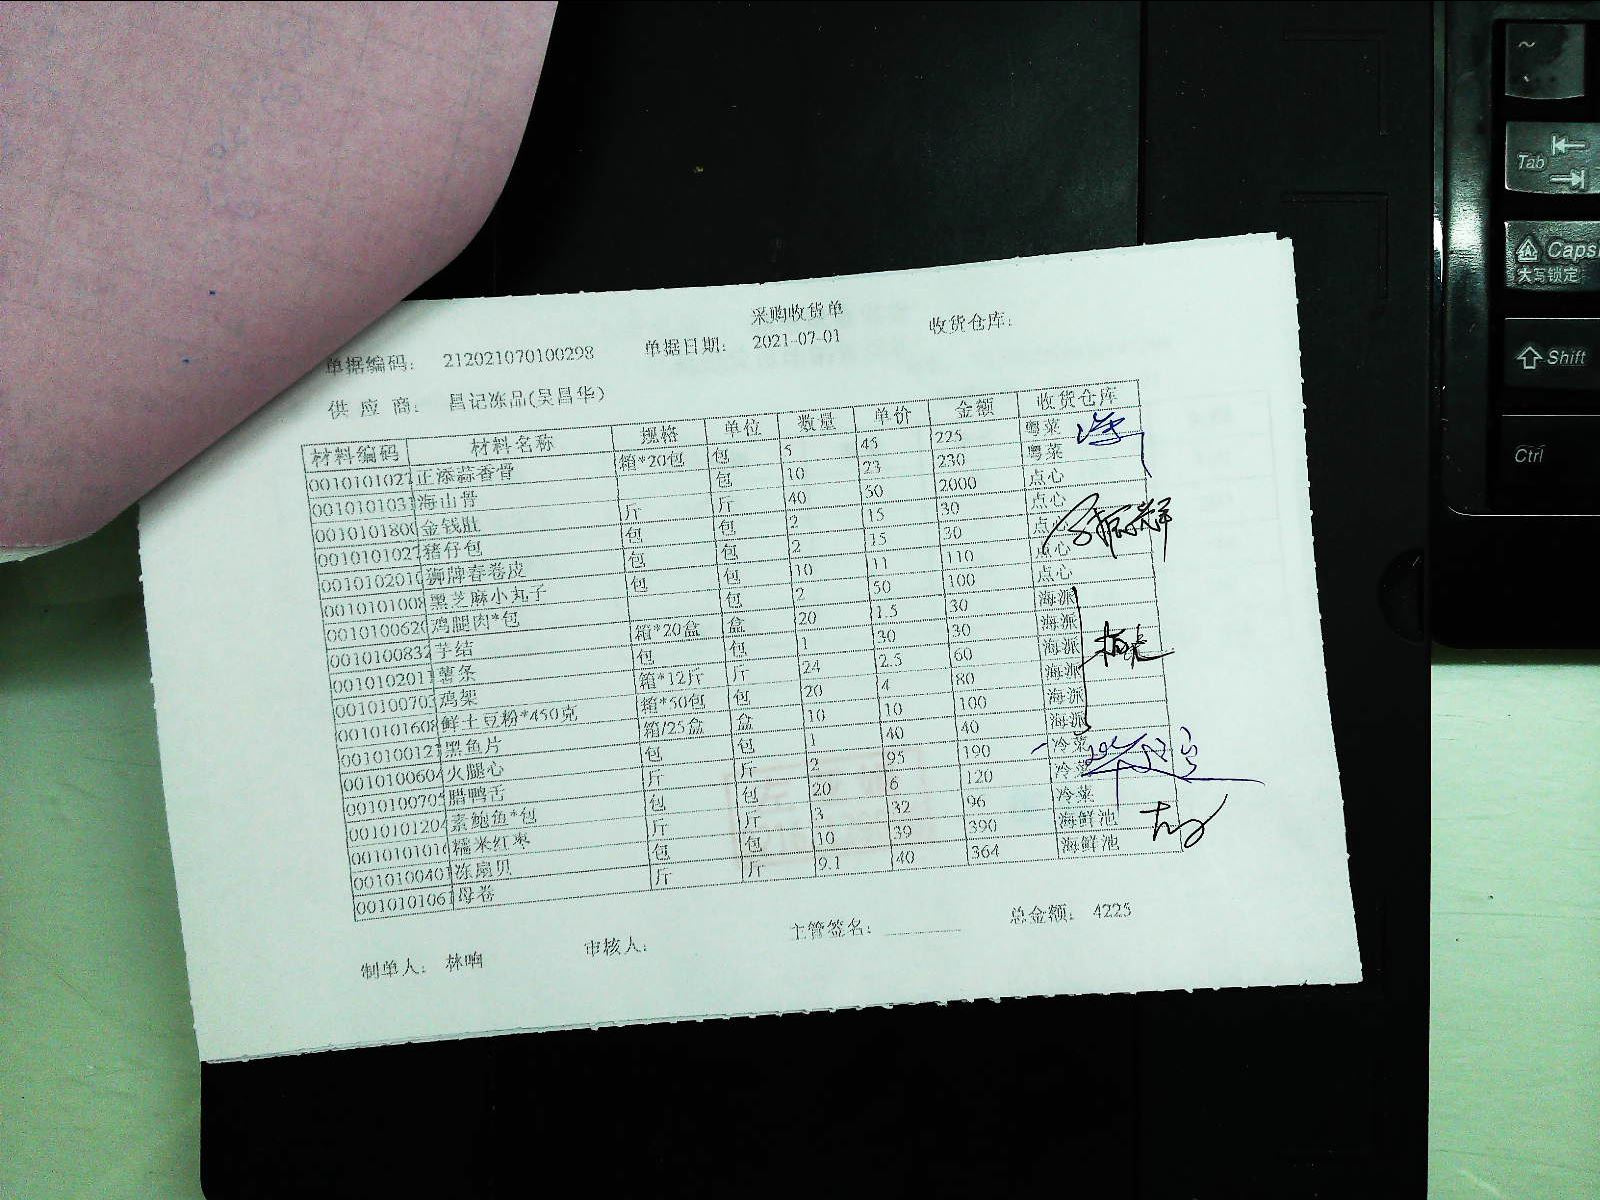 采购收货单
单据编码： 212021070100298 单据日期： 2021-07-01 收货仓库：
供 应 商： 昌记冻品(吴昌华)
材料编码 材料名称 规格 单位 数量 单价 金额 收货仓库
0010101027 正添蒜香骨 箱*20包 包 5 45 225 粤菜
0010101031 海山骨 包 10 23 230 粤菜
001010180 金钱肚 斤 斤 40 50 2000 点心
001010102 猪仔包 包 包 2 15 30 点心
001010201 狮牌春卷皮 包 包 2 15 30 点心
0010101008 黑芝麻小丸子 包 包 10 11 110 点心
001010062 鸡腿肉*包 包 2 50 100 点心
0010100832 芋结 箱*20盒 盒 20 1.5 30 海派
001010201 薯条 包 包 1 30 30 海派
001010070 鸡架 箱*12斤 斤 24 2.5 60 海派
0010101608 鲜土豆粉*450克 箱*50包 包 20 4 80 海派
001010012 黑鱼片 箱/25盒 盒 10 10 100 海派
0010100604 火腿心 包 包 1 40 40 海派
001010070 腊鸭舌 斤 斤 2 95 190 冷菜
0010101204 素鲍鱼*包 包 包 20 6 120 冷菜
001010101 糯米红枣 斤 斤 3 32 96 冷菜
001010040 冻扇贝 包 包 10 39 390 海鲜池
001010106 母卷 斤 斤 9.1 40 364 海鲜池
制单人： 林响 审核人： 主管签名： 总金额： 4225
~
Tab
Caps
大写锁定
Shift
Ctrl